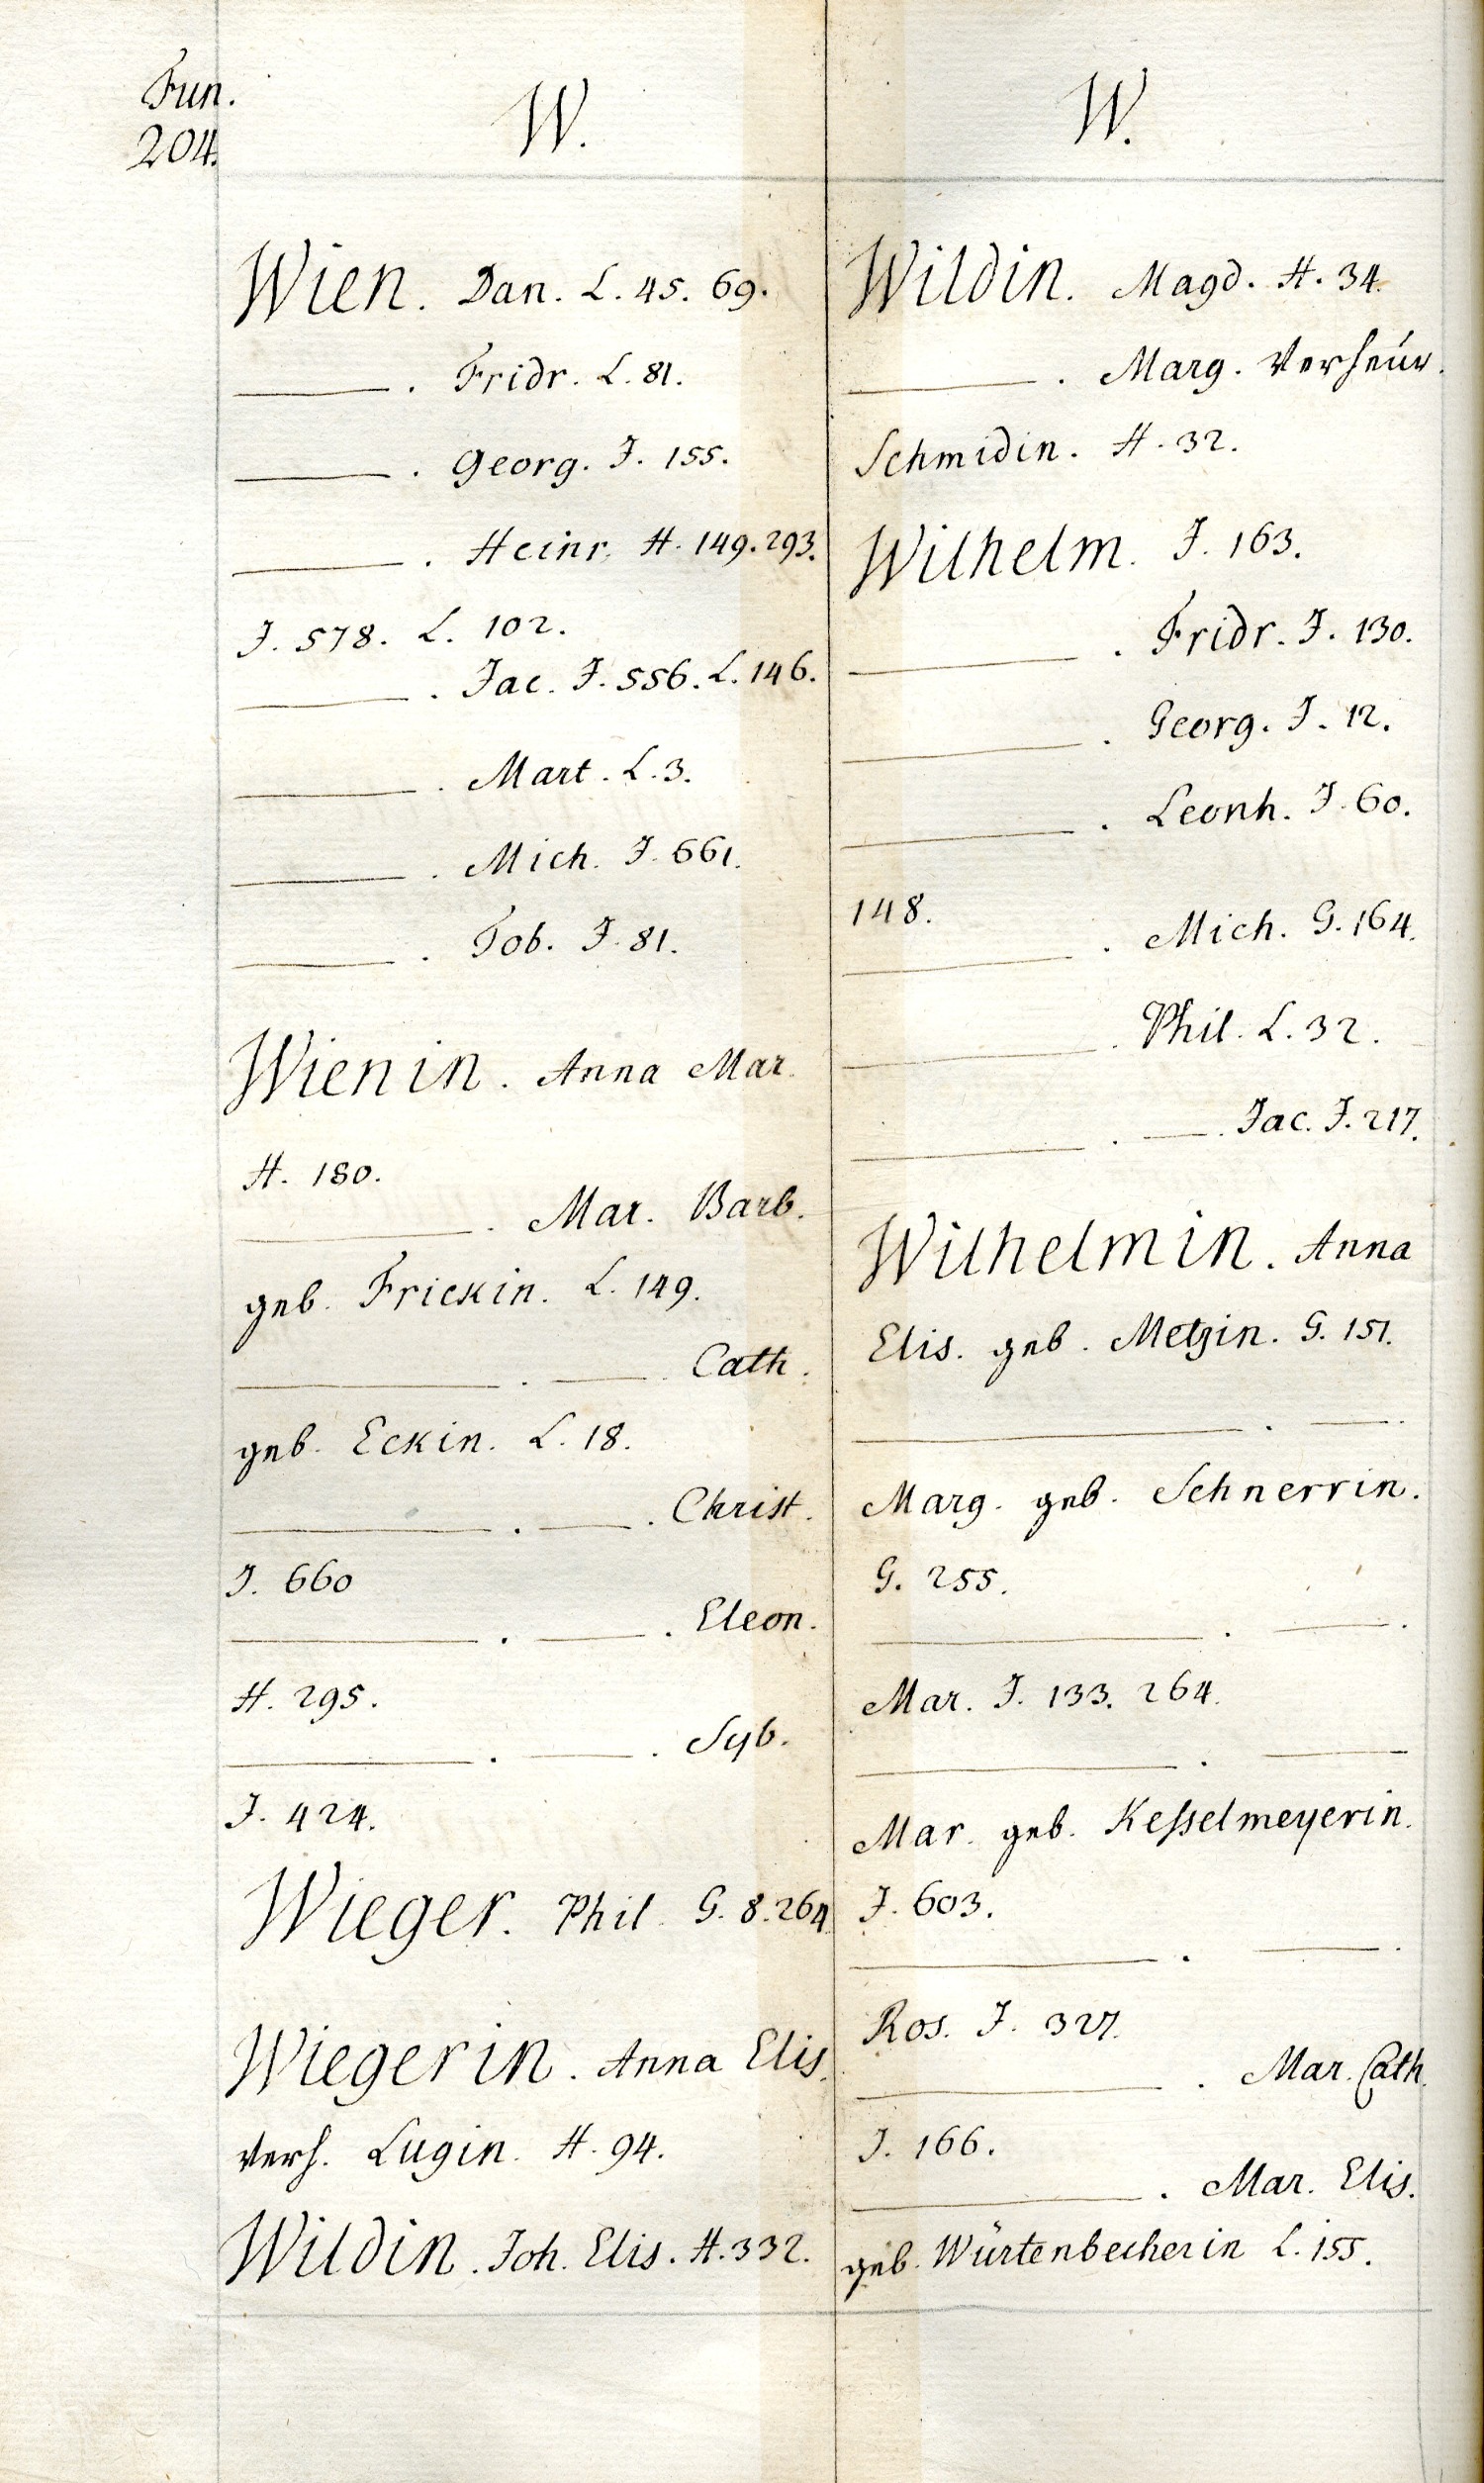 Fun.
204.
W.
Wien. Dan. L. 45. 69.
———. Fridr. L. 81.
———. Georg. J. 155.
———. Heinr. H. 149. 293.
J. 578. L. 102.
———. Jac. J. 556. L. 146.
———. Mart. L. 3.
———. Mich. J. 661.
———. Tob. J. 81.
Wienin. Anna Mar.
H. 180.
———. Mar. Barb.
geb. Frickin. L. 149.
———. ——. Cath.
geb. Eckin. L. 18.
———. ——. Christ.
J. 660
———. ——. Eleon.
H. 295.
———. ——. Syb.
J. 424.
Wieger. Phil. G. 8. 264.
Wiegerin. Anna Elis.
verh. Lugin. H. 94.
Wildin. Joh. Elis. H. 332.
W.
Wildin. Magd. H. 34.
———. Marg.
Schmidin. H. 32.
Wilhelm. J. 163.
———. Fridr. J. 130.
———. Georg. J. 12.
———. Leonh. J. 60.
148.
———. Mich. G. 164.
———. Phil. L. 32.
———. ——. Jac. J. 217.
Wilhelmin. Anna
Elis. geb. Metzin. G. 151.
———. ——.
Marg. geb. Schnerrin.
G. 255.
———. ——.
Mar. J. 133. 264.
———. ——
Mar. geb. Kesselmeyerin.
J. 603.
———. ——.
Ros. J. 327.
———. Mar. Cath.
J. 166.
———. Mar. Elis.
geb. Würtenbecherin L. 155.